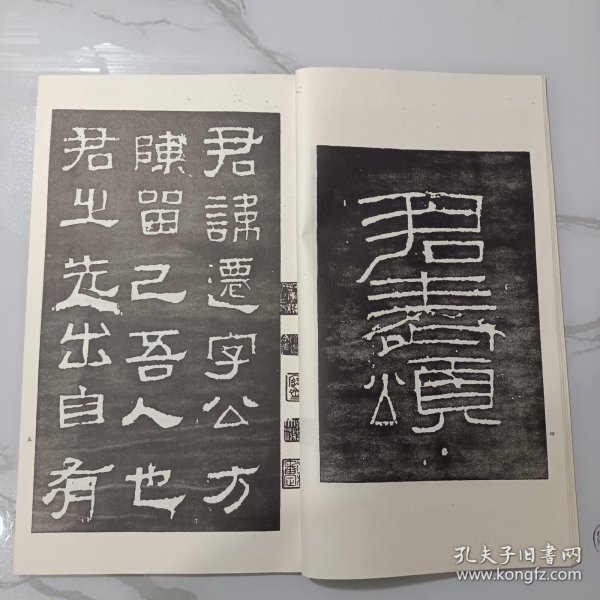 君表頌
君諱遷字公方
陳留己吾人也
君之先出自有
四
五
孔夫子旧书网
www.kongfz.com